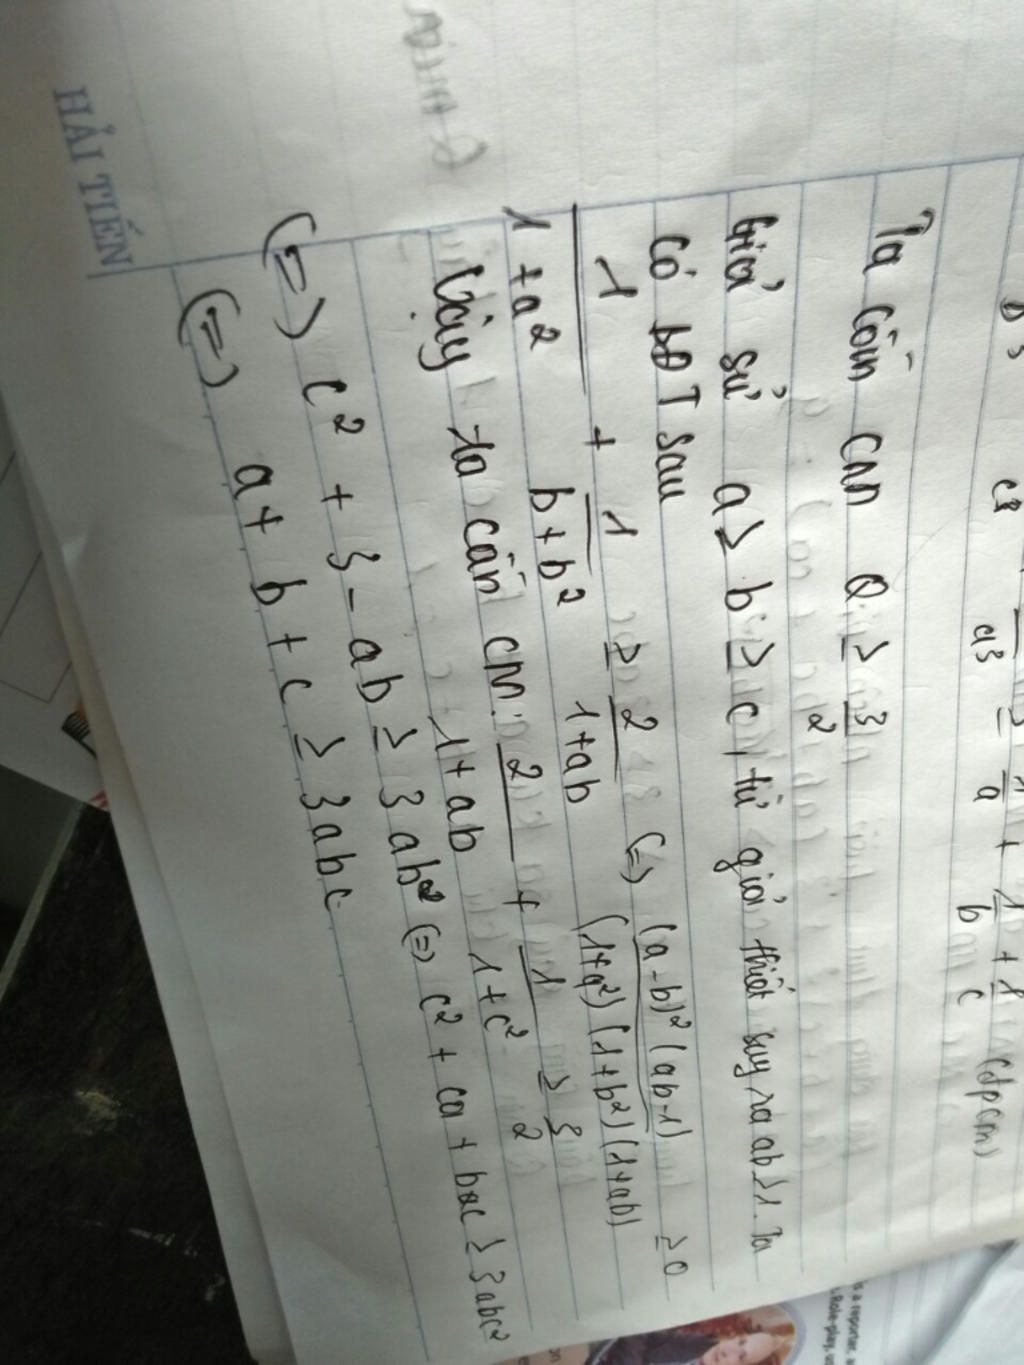 a³ ≥ 1/a + 1/b + 1/c (đpcm)
Ta cần CM Q ≥ 3/2
Giả sử a ≥ b ≥ c, từ giả thiết suy ra ab ≥ 1. Ta
có bĐT sau
1/(1+a²) + 1/(b+b²) ≥ 2/(1+ab) (=) (a-b)²(ab-1)/((1+a²)(1+b²)(1+ab)) ≥ 0
Vậy ta cần CM: 2/(1+ab) + 1/(1+c²) ≥ 3/2
(=) c² + 3 - ab ≥ 3abc² (=) c² + ca + bc ≥ 3abc²
(=) a + b + c ≥ 3abc
HẢI TIẾN
s a reporter
Role-play,